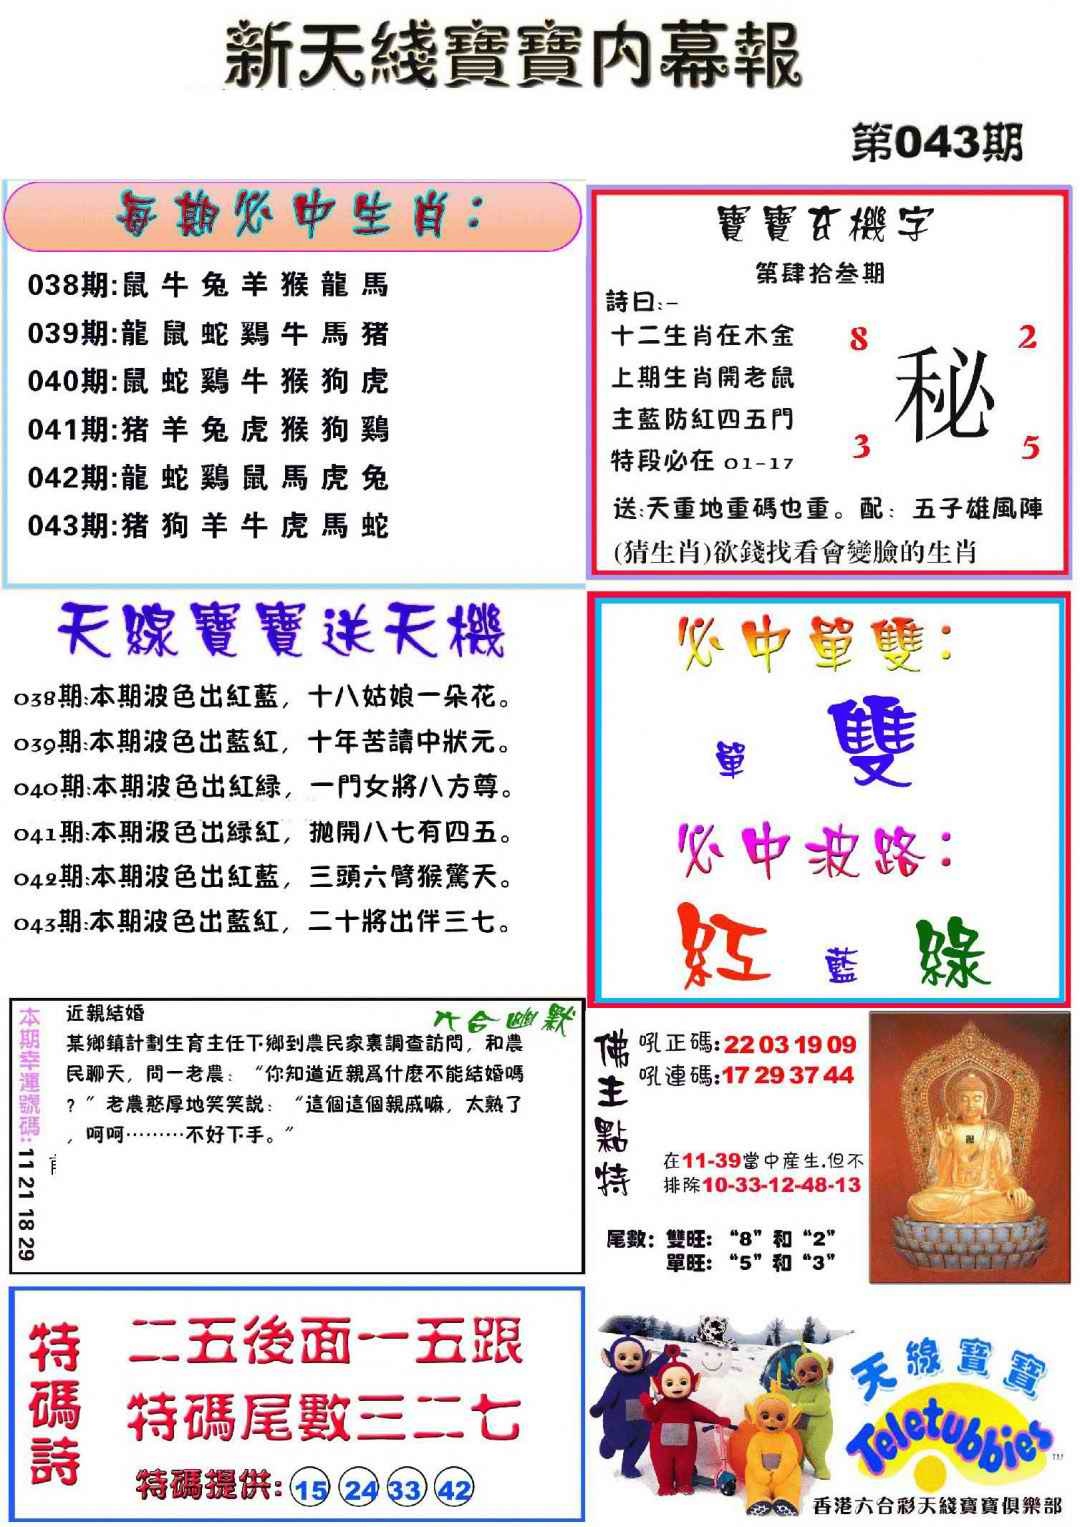 新天綫寶寶内幕報
第043期
每期必中生肖:
038期:鼠 牛 兔 羊 猴 龍 馬
039期:龍 鼠 蛇 鷄 牛 馬 猪
040期:鼠 蛇 鷄 牛 猴 狗 虎
041期:猪 羊 兔 虎 猴 狗 鷄
042期:龍 蛇 鷄 鼠 馬 虎 兔
043期:猪 狗 羊 牛 虎 馬 蛇
寶寶玄機字
第肆拾叁期
詩曰:-
十二生肖在木金
上期生肖開老鼠
主藍防紅四五門
特段必在 01-17
8 2
秘
3 5
送:天重地重碼也重。配：五子雄風陣
(猜生肖)欲錢找看會變臉的生肖
天線寶寶送天機
038期:本期波色出紅藍，十八姑娘一朵花。
039期:本期波色出藍紅，十年苦讀中狀元。
040期:本期波色出紅緑，一門女將八方尊。
041期:本期波色出緑紅，抛開八七有四五。
042期:本期波色出紅藍，三頭六臂猴驚天。
043期:本期波色出藍紅，二十將出伴三七。
必中單雙:
單 雙
必中波路:
紅 藍 綠
本期幸運號碼:11 21 18 29
六合幽默
近親結婚
某鄉鎮計劃生育主任下鄉到農民家裏調查訪問，和農
民聊天，問一老農：“你知道近親爲什麽不能結婚嗎
？”老農憨厚地笑笑説：“這個這個親戚嘛，太熟了
，呵呵………不好下手。”
佛主點特
吼正碼:22 03 19 09
吼連碼:17 29 37 44
在11-39當中産生.但不
排除10-33-12-48-13
尾數：雙旺：“8”和“2”
單旺：“5”和“3”
特碼詩
二五後面一五跟
特碼尾數三二七
特碼提供: 15 24 33 42
天線寶寶
Teletubbies
TM
香港六合彩天綫寶寶俱樂部